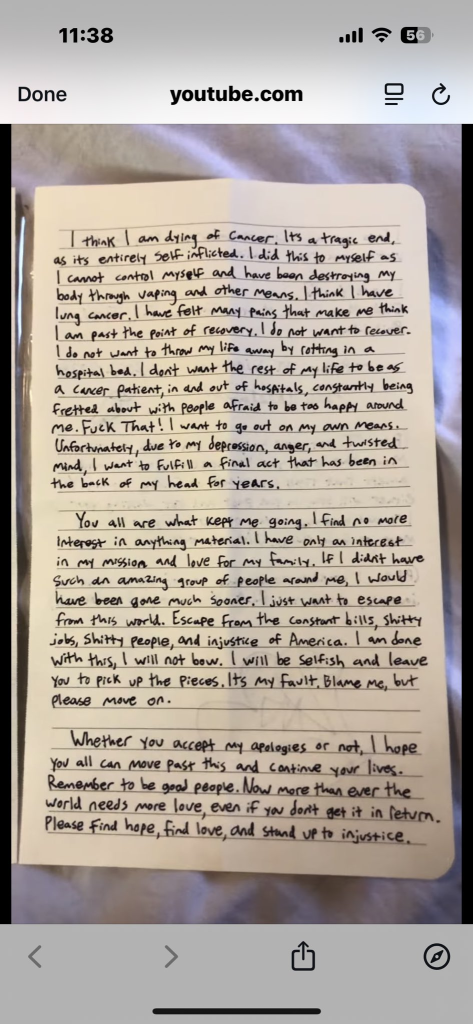 11:38
56
Done
youtube.com
I think I am dying of cancer. Its a tragic end,
as its entirely self inflicted. I did this to myself as
I cannot control myself and have been destroying my
body through vaping and other means. I think I have
lung cancer. I have felt many pains that make me think
I am past the point of recovery. I do not want to recover.
I do not want to throw my life away by rotting in a
hospital bed. I don't want the rest of my life to be as
a cancer patient, in and out of hospitals, constantly being
fretted about with people afraid to be too happy around
me. Fuck That! I want to go out on my own means.
Unfortunately, due to my depression, anger, and twisted
mind, I want to fulfill a final act that has been in
the back of my head for years.
You all are what kept me going. I find no more
interest in anything material. I have only an interest
in my mission and love for my family. If I didn't have
such an amazing group of people around me, I would
have been gone much sooner. I just want to escape
from this world. Escape from the constant bills, shitty
jobs, shitty people, and injustice of America. I am done
with this, I will not bow. I will be selfish and leave
you to pick up the pieces. Its my fault. Blame me, but
please move on.
Whether you accept my apologies or not, I hope
you all can move past this and continue your lives.
Remember to be good people. Now more than ever the
world needs more love, even if you don't get it in return.
Please find hope, find love, and stand up to injustice.